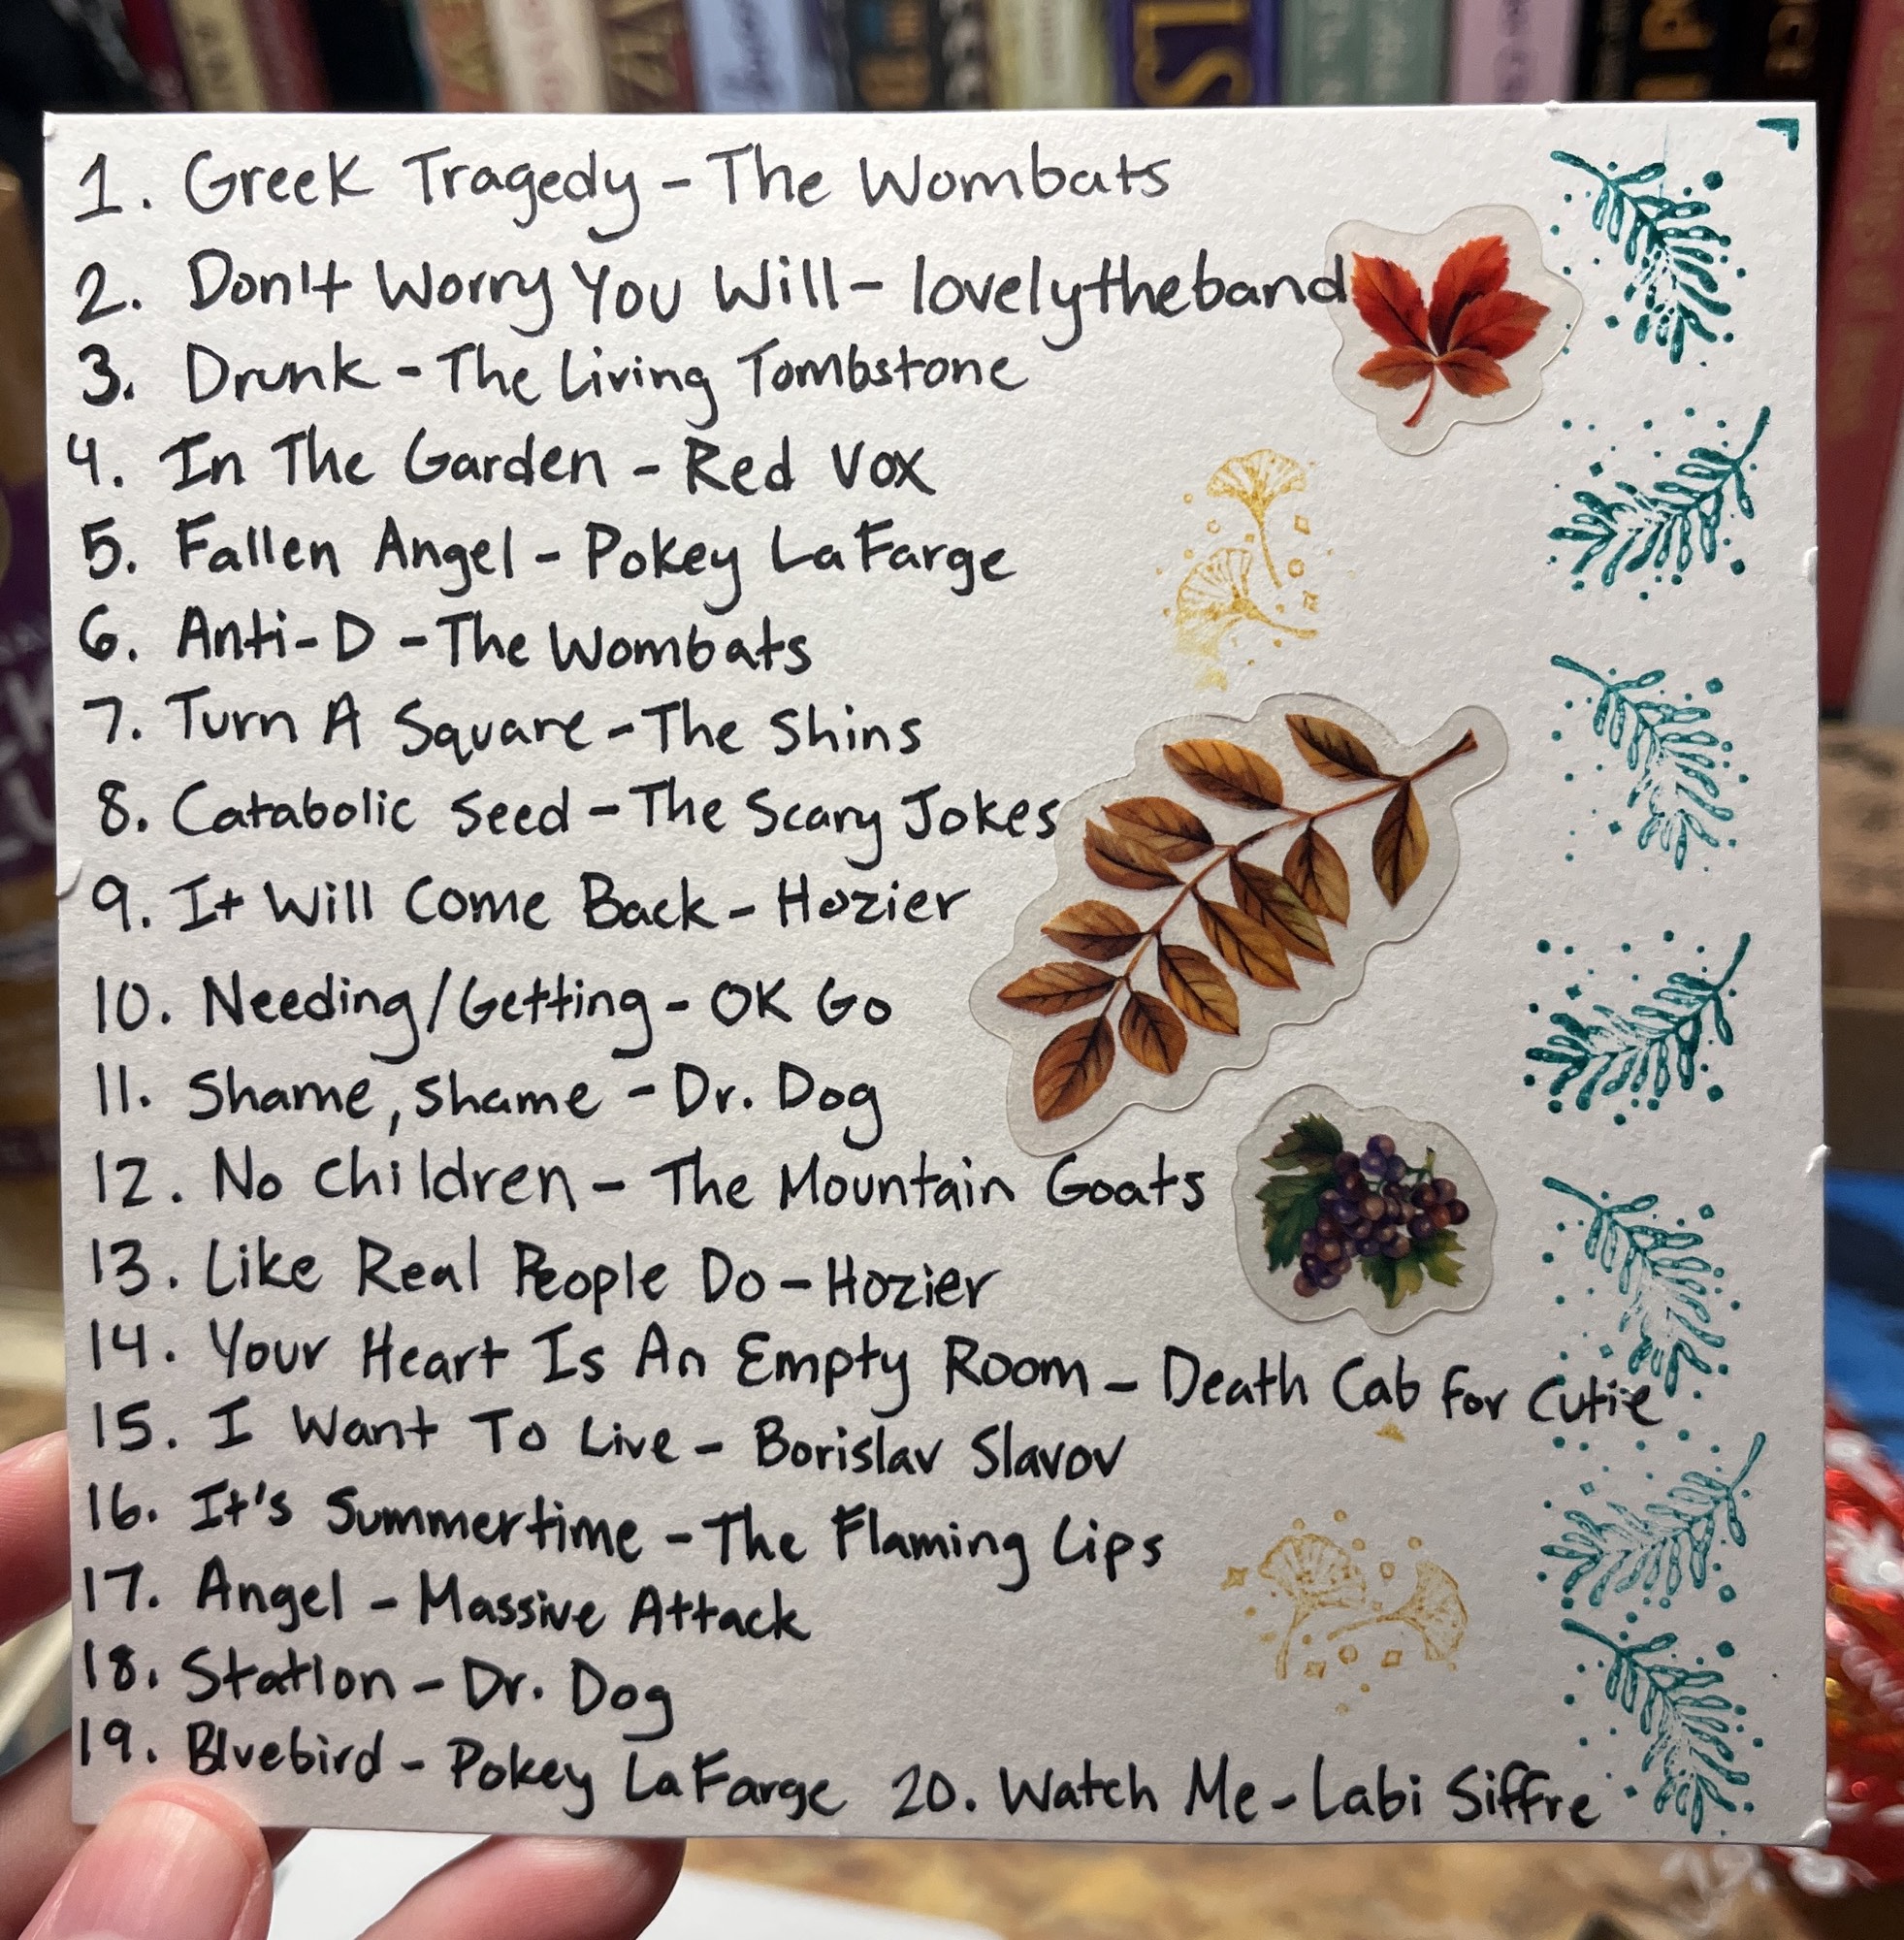 1. Greek Tragedy - The Wombats
2. Don't Worry You Will - lovelytheband
3. Drunk - The Living Tombstone
4. In The Garden - Red Vox
5. Fallen Angel - Pokey LaFarge
6. Anti-D - The Wombats
7. Turn A Square - The Shins
8. Catabolic Seed - The Scary Jokes
9. It Will Come Back - Hozier
10. Needing/Getting - OK Go
11. Shame, Shame - Dr. Dog
12. No Children - The Mountain Goats
13. Like Real People Do - Hozier
14. Your Heart Is An Empty Room - Death Cab for Cutie
15. I Want To Live - Borislav Slavov
16. It's Summertime - The Flaming Lips
17. Angel - Massive Attack
18. Station - Dr. Dog
19. Bluebird - Pokey LaFarge 20. Watch Me - Labi Siffre